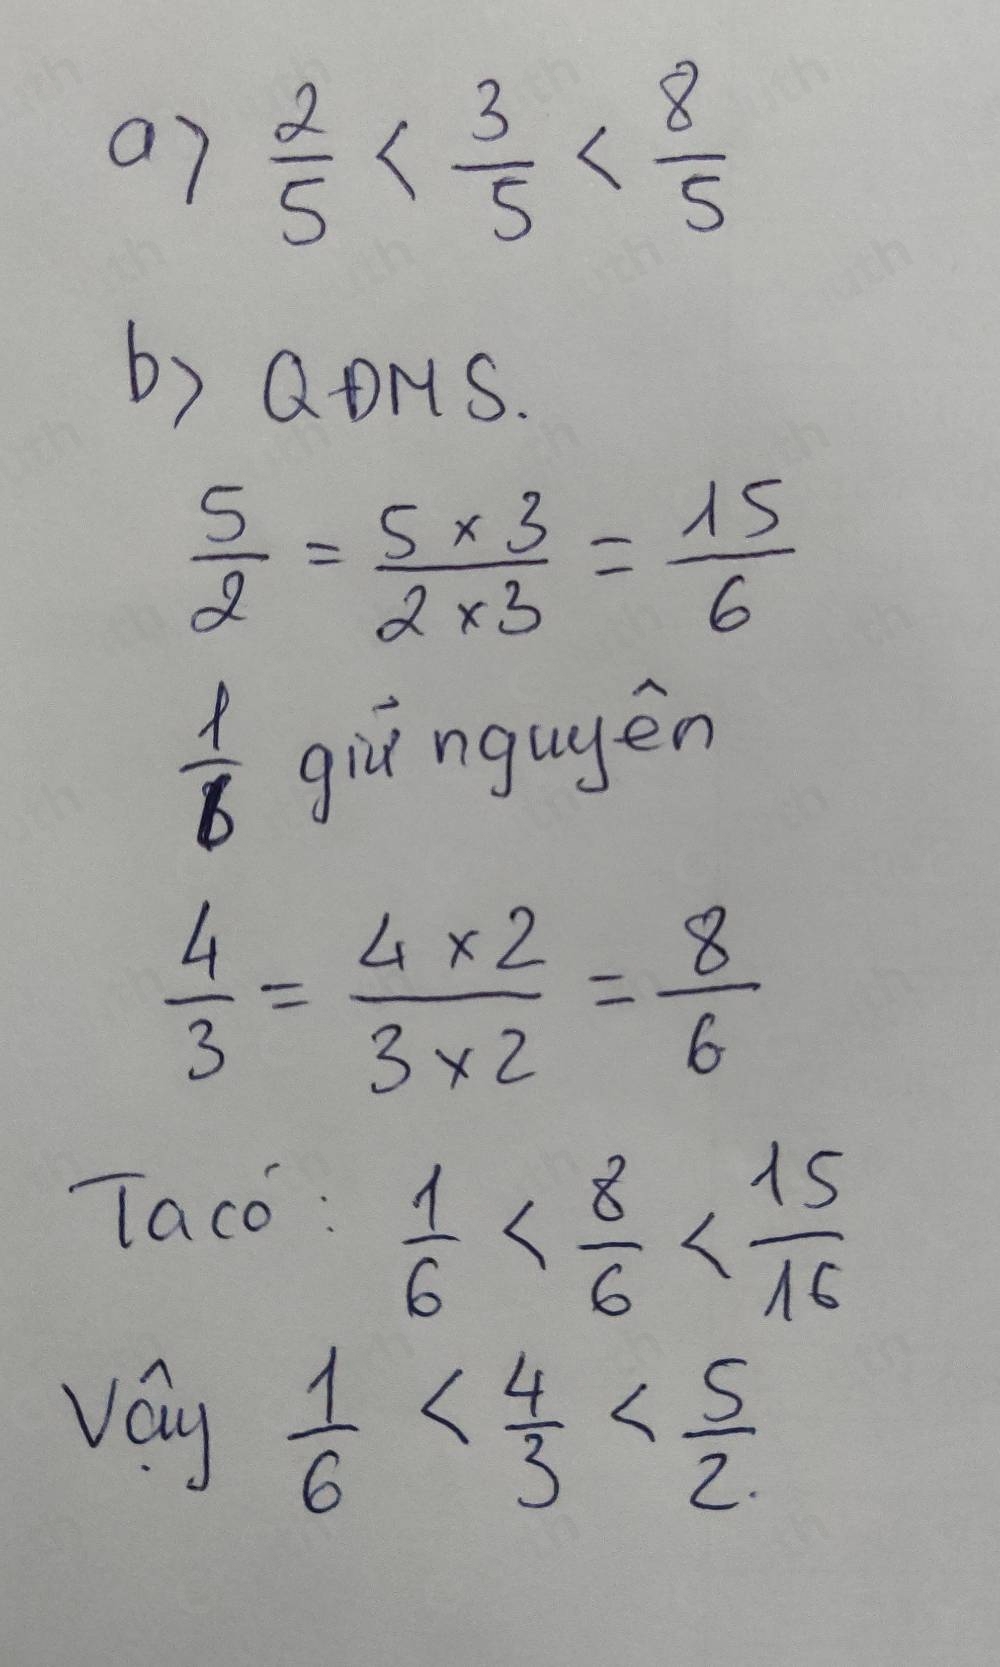 a) 2/5 < 3/5 < 8/5
b) QĐMS.
5/2 = 5 × 3 / 2 × 3 = 15/6
1/6 giữ nguyên
4/3 = 4 × 2 / 3 × 2 = 8/6
Ta có: 1/6 < 8/6 < 15/16
Vậy 1/6 < 4/3 < 5/2.